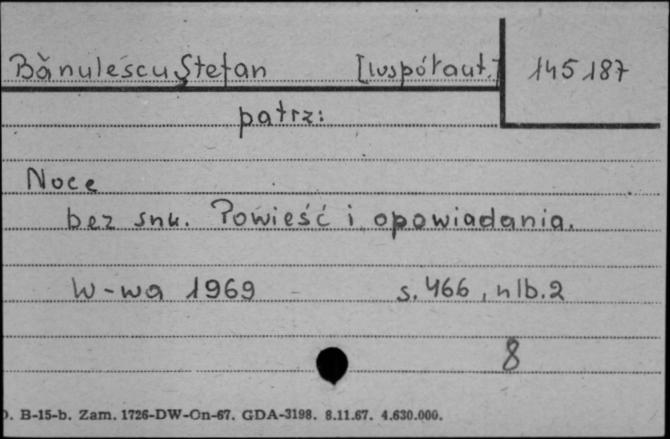 Bănulescu Ștefan [współaut.] 145187
patrz:
Noce
bez snu. Powieść i opowiadania.
W-wa 1969 s. 466, nlb. 2
8
B-15-b. Zam. 1726-DW-On-67. GDA-3198. 8.11.67. 4.630.000.